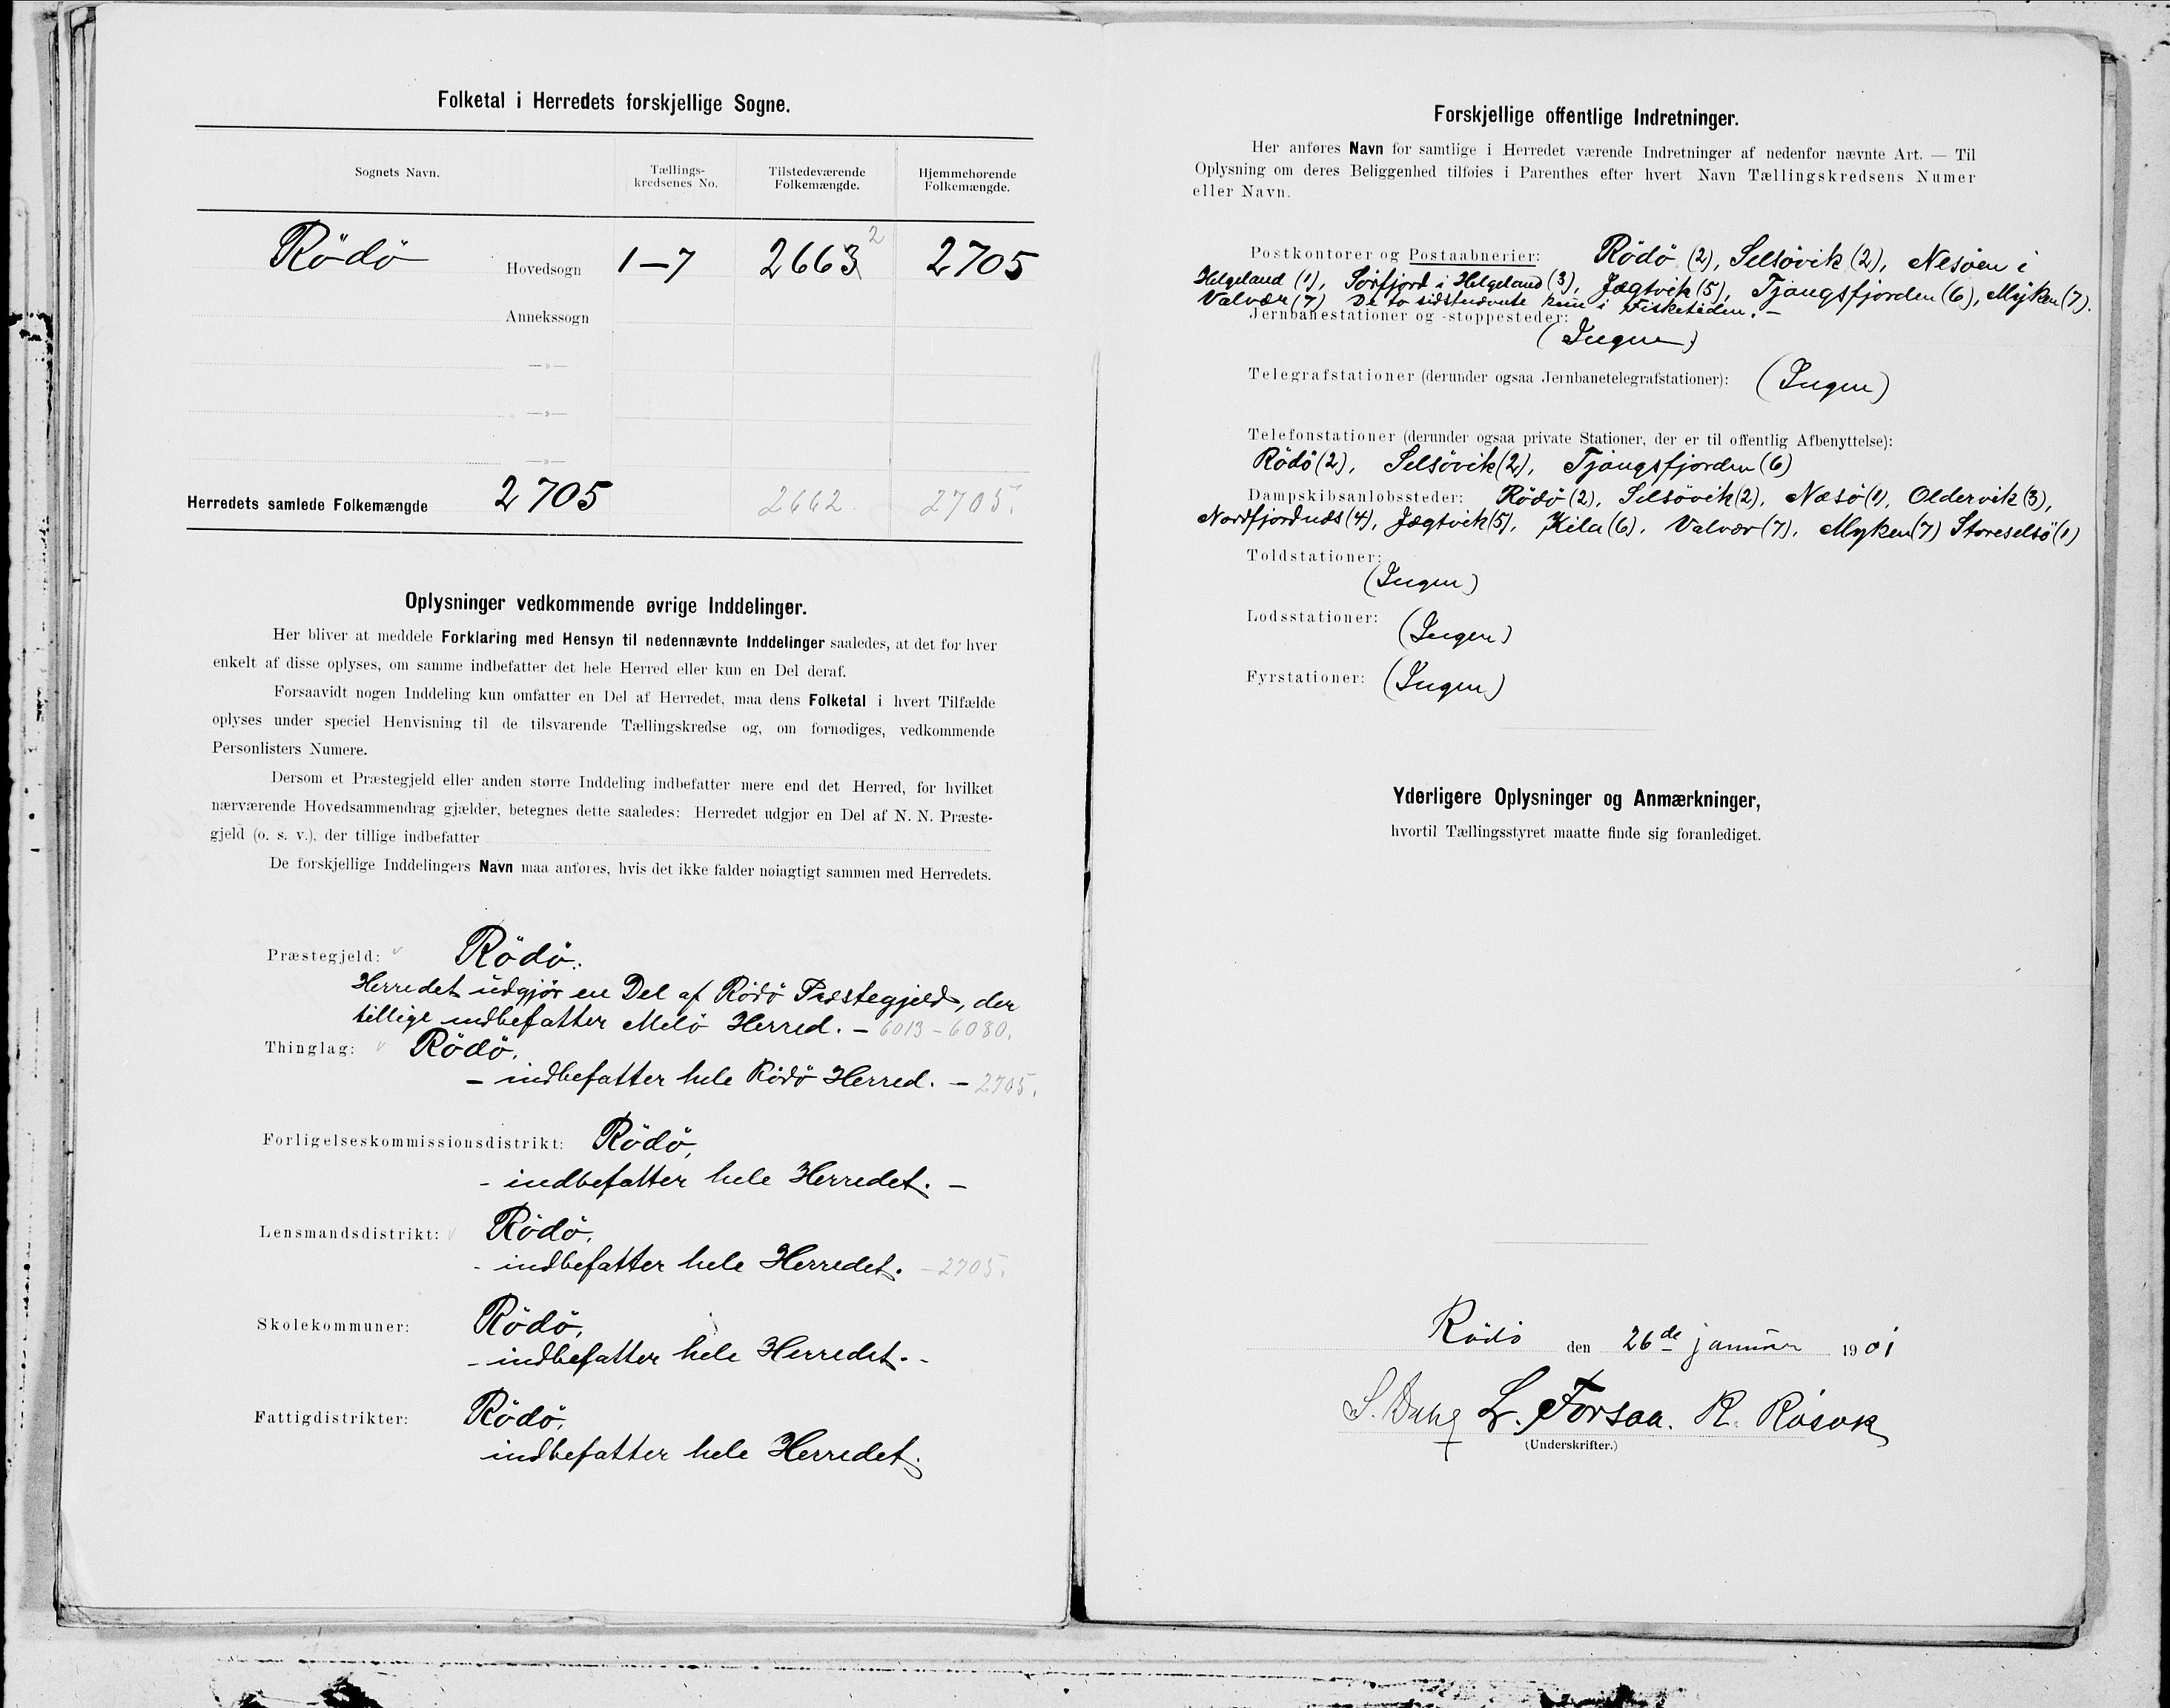 Folketal i Herredets forskjellige Sogne.
Sognets Navn. Tællings-kredsenes No. Tilstedeværende Folkemængde. Hjemmehørende Folkemængde.
Rödö Hovedsogn 1–7 2663 2 2705
Annekssogn
—»—
—»—
—»—
Herredets samlede Folkemængde 2705 2662 2705.
Oplysninger vedkommende øvrige Inddelinger.
Her bliver at meddele Forklaring med Hensyn til nedennævnte Inddelinger saaledes, at det for hver
enkelt af disse oplyses, om samme indbefatter det hele Herred eller kun en Del deraf.
Forsaavidt nogen Inddeling kun omfatter en Del af Herredet, maa dens Folketal i hvert Tilfælde
oplyses under speciel Henvisning til de tilsvarende Tællingskredse og, om fornødiges, vedkommende
Personlisters Numere.
Dersom et Præstegjeld eller anden større Inddeling indbefatter mere end det Herred, for hvilket
nærværende Hovedsammendrag gjælder, betegnes dette saaledes: Herredet udgjør en Del af N. N. Præste-
gjeld (o. s. v.), der tillige indbefatter
De forskjellige Inddelingers Navn maa anføres, hvis det ikke falder nøiagtigt sammen med Herredets.
Præstegjeld: Rödö.
Herredet udgjör en Del af Rödö Præstegjeld, der
tillige indbefatter Melö Herred. – 6013 – 6080.
Thinglag: Rödö,
– indbefatter hele Rödö Herred. – 2705.
Forligelseskommissionsdistrikt: Rödö,
- indbefatter hele Herredet. –
Lensmandsdistrikt: Rödö,
- indbefatter hele Herredet. – 2705.
Skolekommuner: Rödö,
- indbefatter hele Herredet. -
Fattigdistrikter: Rödö,
indbefatter hele Herredet.
Forskjellige offentlige Indretninger.
Her anføres Navn for samtlige i Herredet værende Indretninger af nedenfor nævnte Art. — Til
Oplysning om deres Beliggenhed tilføies i Parenthes efter hvert Navn Tællingskredsens Numer
eller Navn.
Postkontorer og Postaabnerier: Rödö (2), Selsövik (2), Nesöen i
Helgeland (1), Sörfjord i Helgeland (3), Jægtvik (5), Tjongsfjorden (6), Myken (7).
Valvær (7) De to sidstnævnte kun i Fisketiden. –
Jernbanestationer og -stoppesteder:
(Ingen)
Telegrafstationer (derunder ogsaa Jernbanetelegrafstationer): (Ingen)
Telefonstationer (derunder ogsaa private Stationer, der er til offentlig Afbenyttelse):
Rödö (2), Selsövik (2), Tjongsfjorden (6)
Dampskibsanløbssteder: Rödö (2), Selsövik (2), Næsö (1), Oldervik (3),
Nordfjordnæs (4), Jægtvik (5), Kila (6), Valvær (7), Myken (7) Storeselsö (1)
Toldstationer:
(Ingen)
Lodsstationer: (Ingen)
Fyrstationer: (Ingen)
Yderligere Oplysninger og Anmærkninger,
hvortil Tællingsstyret maatte finde sig foranlediget.
Rödö den 26de januar 1901
S. Dahl L. Forsaa. R. Røsok
(Underskrifter.)